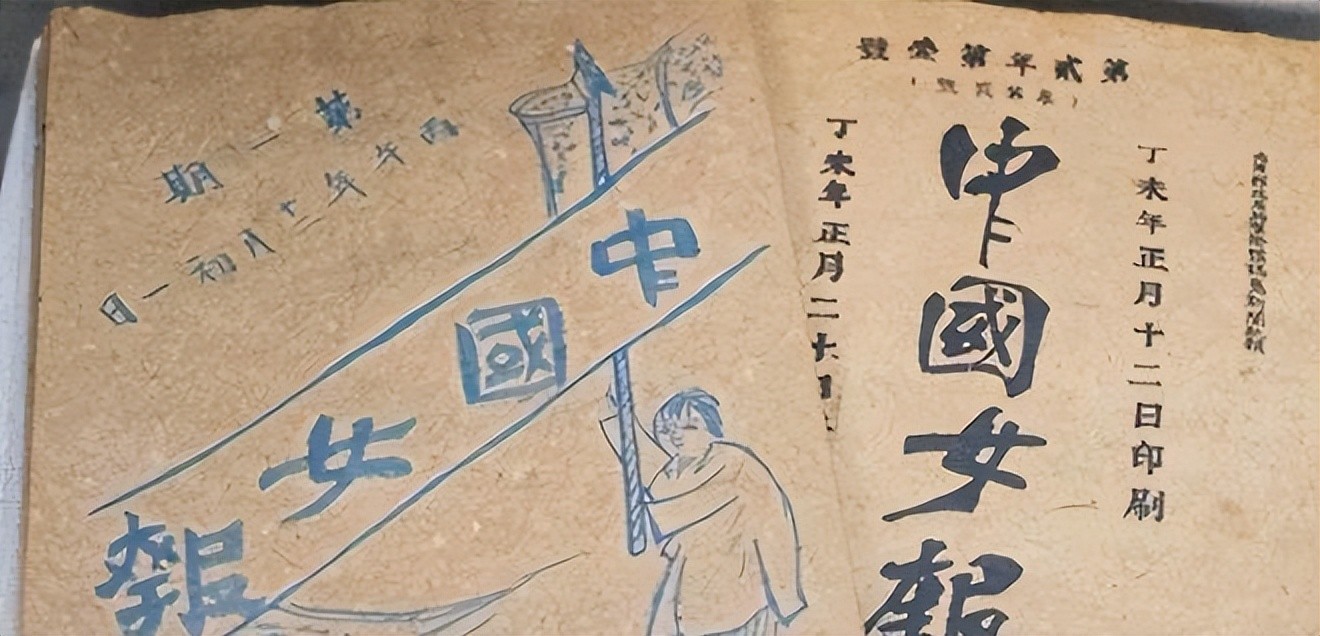 第一期
丙午年十二月初一日
中國女報
第貳年第壹號
丁未年正月十二日印刷
中國女報
丁未年正月二十日